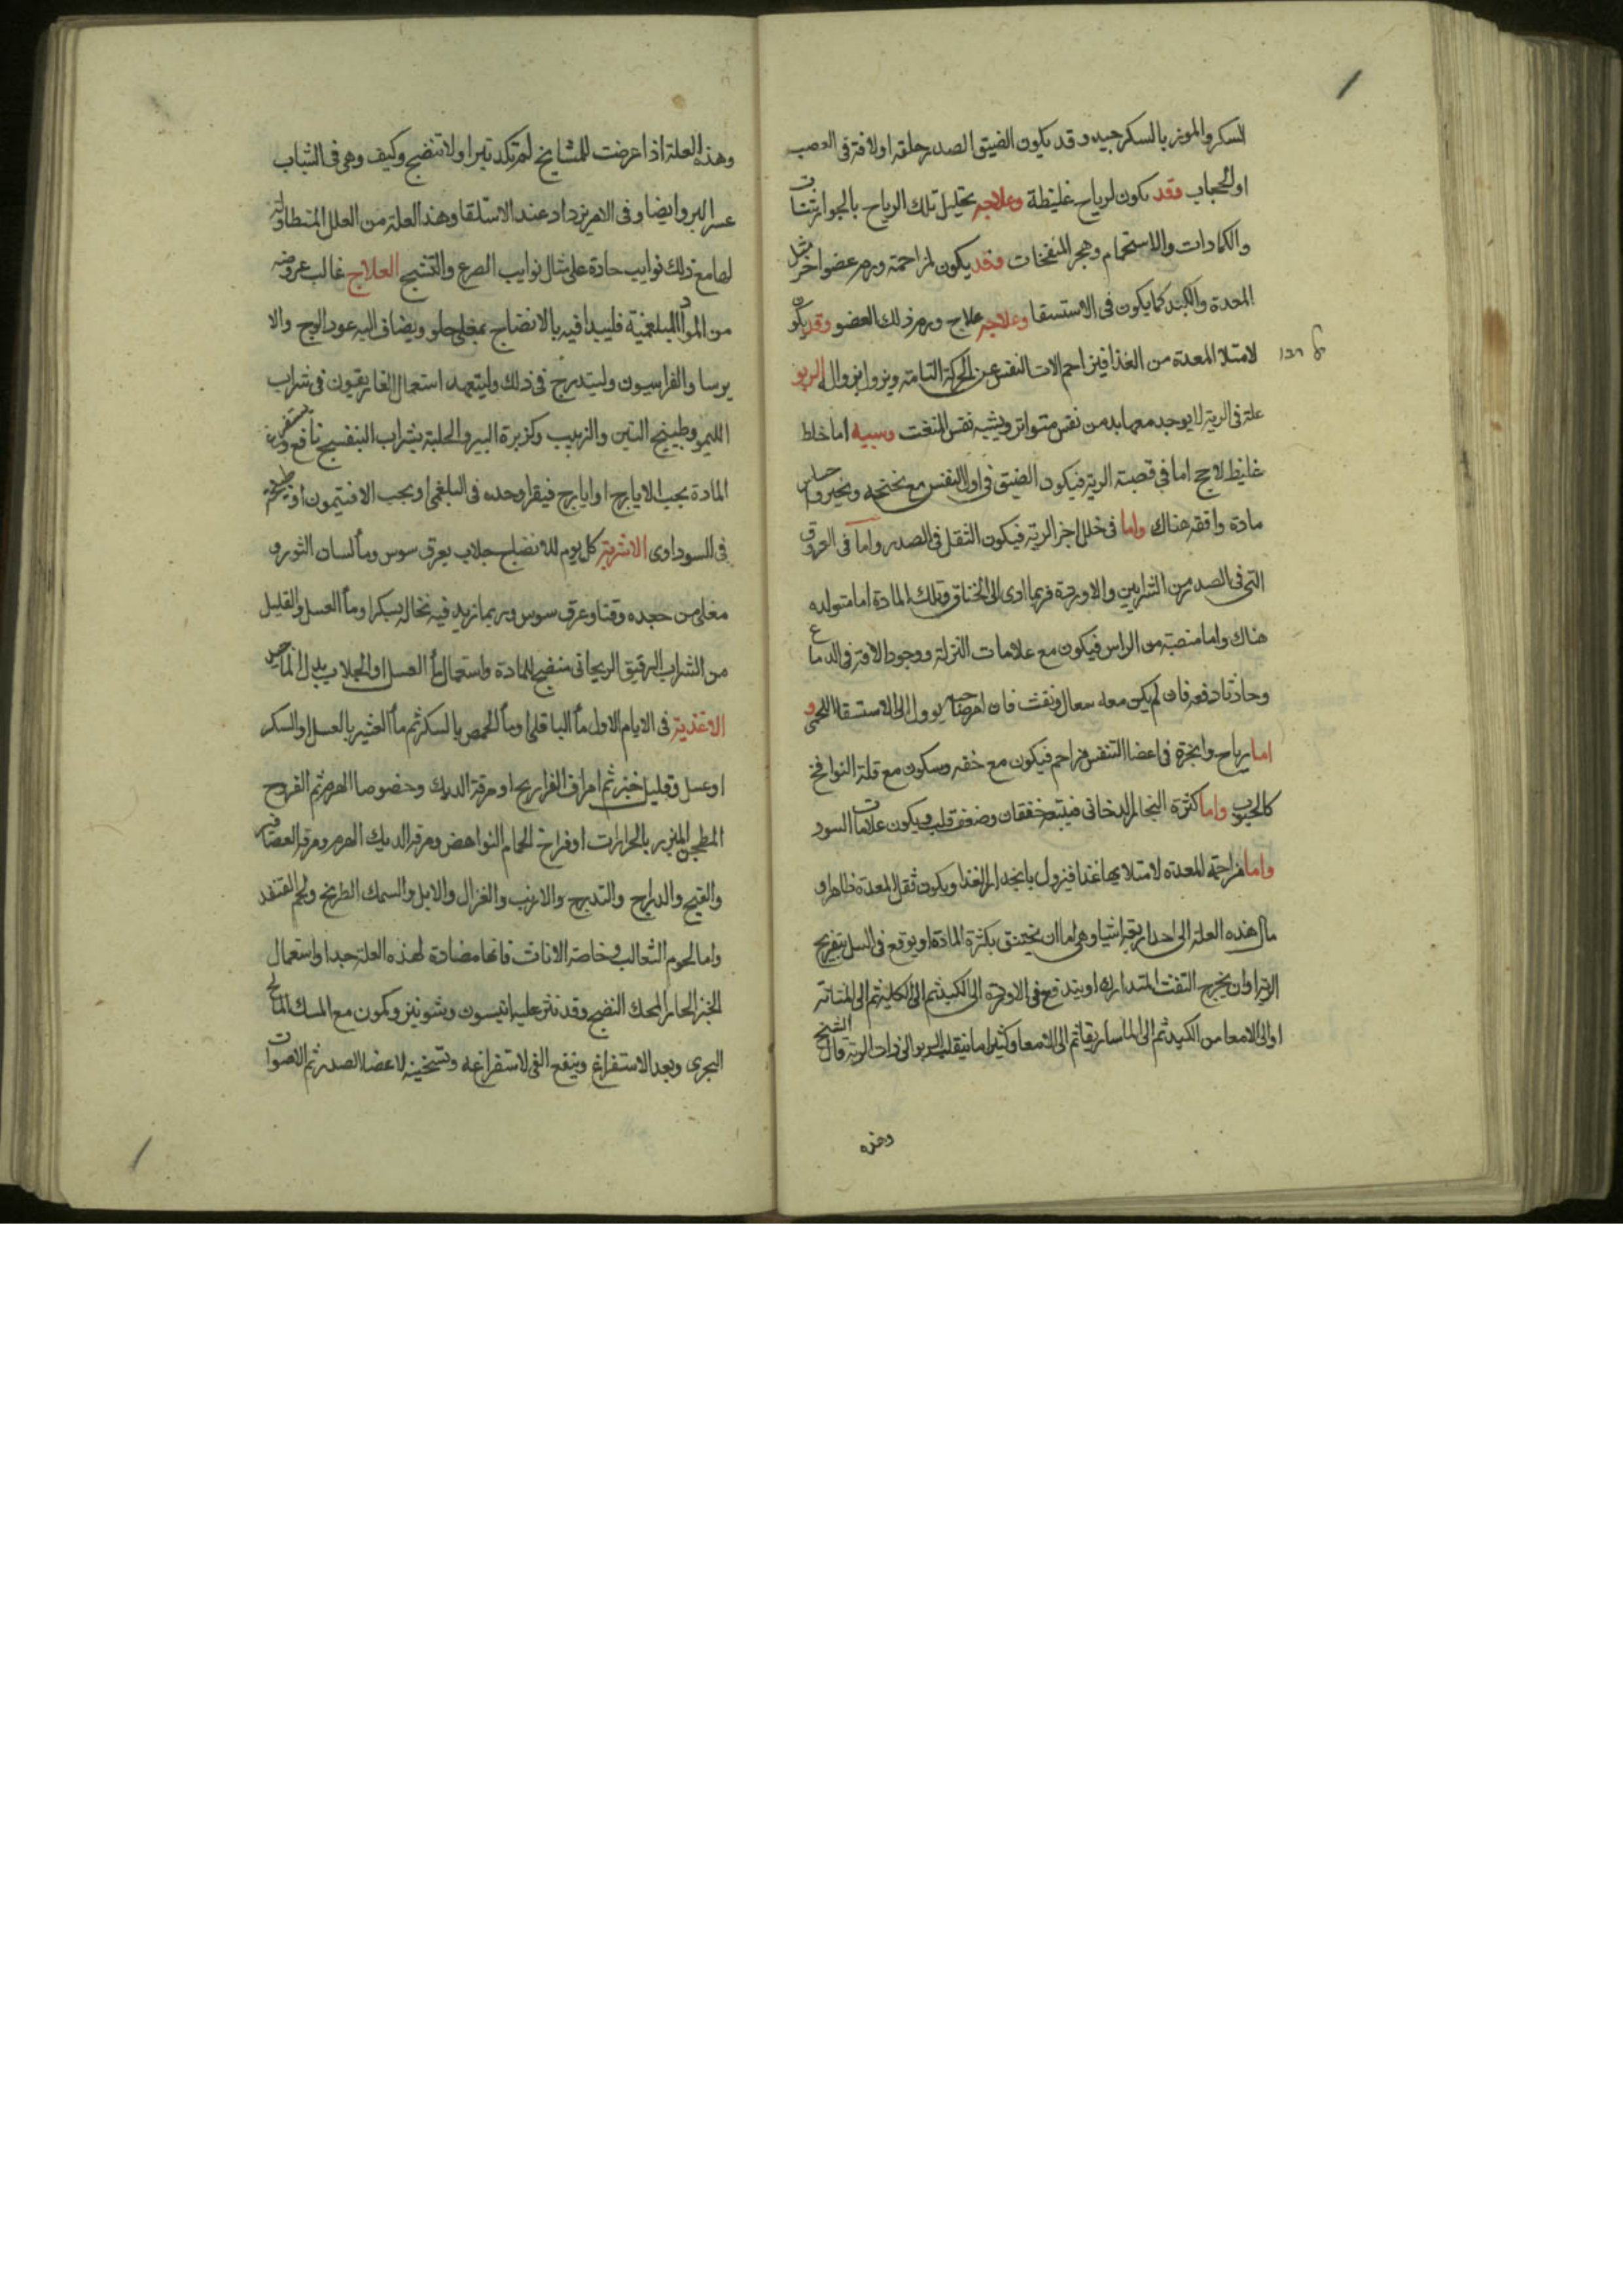 السكر والموز بالسكر جيد وقد يكون الضيق الصدر خلقه او لافة فى العصب
او الحجاب وقد يكون لرياح غليظة وعلاجه تحليل تلك الرياح بالجوارشنات
والكمادات والاستحمام وهجر المنفخات وقد يكون لمزاحمة ورم عضو اخر مثل
المعدة والكبد كما يكون فى الاستسقا وعلاجه علاج ورم ذلك العضو وقد يكون
لامتلا المعدة من الغذا فيزاحم الات النفس عن الحركة التامة ويزول بزواله الربو
علة فى الرية لا يوجد معها بد من نفس متواتر ويشبه نفس المتعب وسببه اما خلط
غليظ لاحج اما فى قصبة الرية فيكون الضيق فى اول النفس مع نحنحه ونخير واحساس
مادة واقفه هناك واما فى خلل اجزا الرية فيكون الثقل فى الصدر واما فى العروق
التى فى الصدر من الشرايين والاوردة فربما ادى الى الخناق وتلك المادة اما متولده
هناك واما منصبة من الراس فيكون مع علامات النزلة ووجود الافة فى الدماغ
وحادثا دفعه فان لم يكن معه سعال ونفث فان امرضا حبه يوول الى الاستسقا اللحمى و
اما رياح وابخرة فى اعضا التنفس تزاحم فيكون مع خفه وسكون مع قلة النوافخ
كالحبوب واما كثرة البخار الدخانى فيتبعه خفقان وضعف قلب ويكون علامات السودا
واما مزاحمة المعدة لامتلايها غذا فيزول بانحدار الغذا ويكون ثقل المعدة ظاهرا و
مال هذه العلة الى احد اربعة اشيا وهى اما ان تختنق بكثرة المادة او يوقع فى السل بتقريح
الرية او ان يخرج النفث المتدارك او يندفع فى الاوردة الى الكبد ثم الى الكلية ثم الى المثانة
او الى الامعا من الكبد ثم الى الماساريقا ثم الى الامعا وكثيرا ما ينقلب الربو الى ذات الرية قال الشيخ
وهذه
وهذه العلة اذا عرضت للمشايخ لم تكد تبرا ولا تنضج وكيف وهى فى الشباب
عسر البرو ايضا وفى الامر يزداد عند الاستلقا وهذه العلة من العلل المتطاولة
لها مع ذلك نوايب حادة على مثال نوايب الصرع والتشنج العلاج غالب عروضه
من المواد البلغمية فليبدا فيه بالانضاج بمغلى حلو ويضاف اليه عود الوج والا
يرسا والفراسيون وليتدرج فى ذلك وليتعهد استعمال الغاريقون فى شراب
الليمو وطبيخ التين والزبيب وكزبرة البير والحلبة بشراب البنفسج نافع ويستفرغ
المادة بحب الايارج او ايارج فيقرا وحده فى البلغمى او بحب الافتيمون او طبيخه
فى السوداوى الاشربة كل يوم للانضاج جلاب بعرق سوس وما لسان الثور و
مغلى من جعده وقنا وعرق سوس وربما زيد فيه نخاله بسكر او ما العسل والقليل
من الشراب الرقيق الريحانى منضج للمادة واستعمال ما العسل او الجلاب بدل الما جيد
الاغذية فى الايام الاول ما الباقلى او ما الحمص بالسكر ثم ما الشعير بالعسل او السكر
او عسل وقليل خبز ثم امراق الفراريج او مرقة الديك وخصوصا الهرم ثم الفروج
المطجن المبزر بالحرارت او فراخ الحمام النواهض ومرق الديك الهرم ومرق العصافير
والقبج والدراج والتدرج والارنب والغزال والايل والسمك الطريخ ولحم القنفد
واما لحوم الثعالب وخاصة الانات فانها مضادة لهذه العلة جدا واستعمال
الخبز الحار المحك النضج وقد نثر عليه انيسون وشونيز وكمون مع المسك المالح
البحرى وبعد الاستفراغ وينفع القى لاستفراغه وتسخينه لاعضا الصدر ثم الاصوات